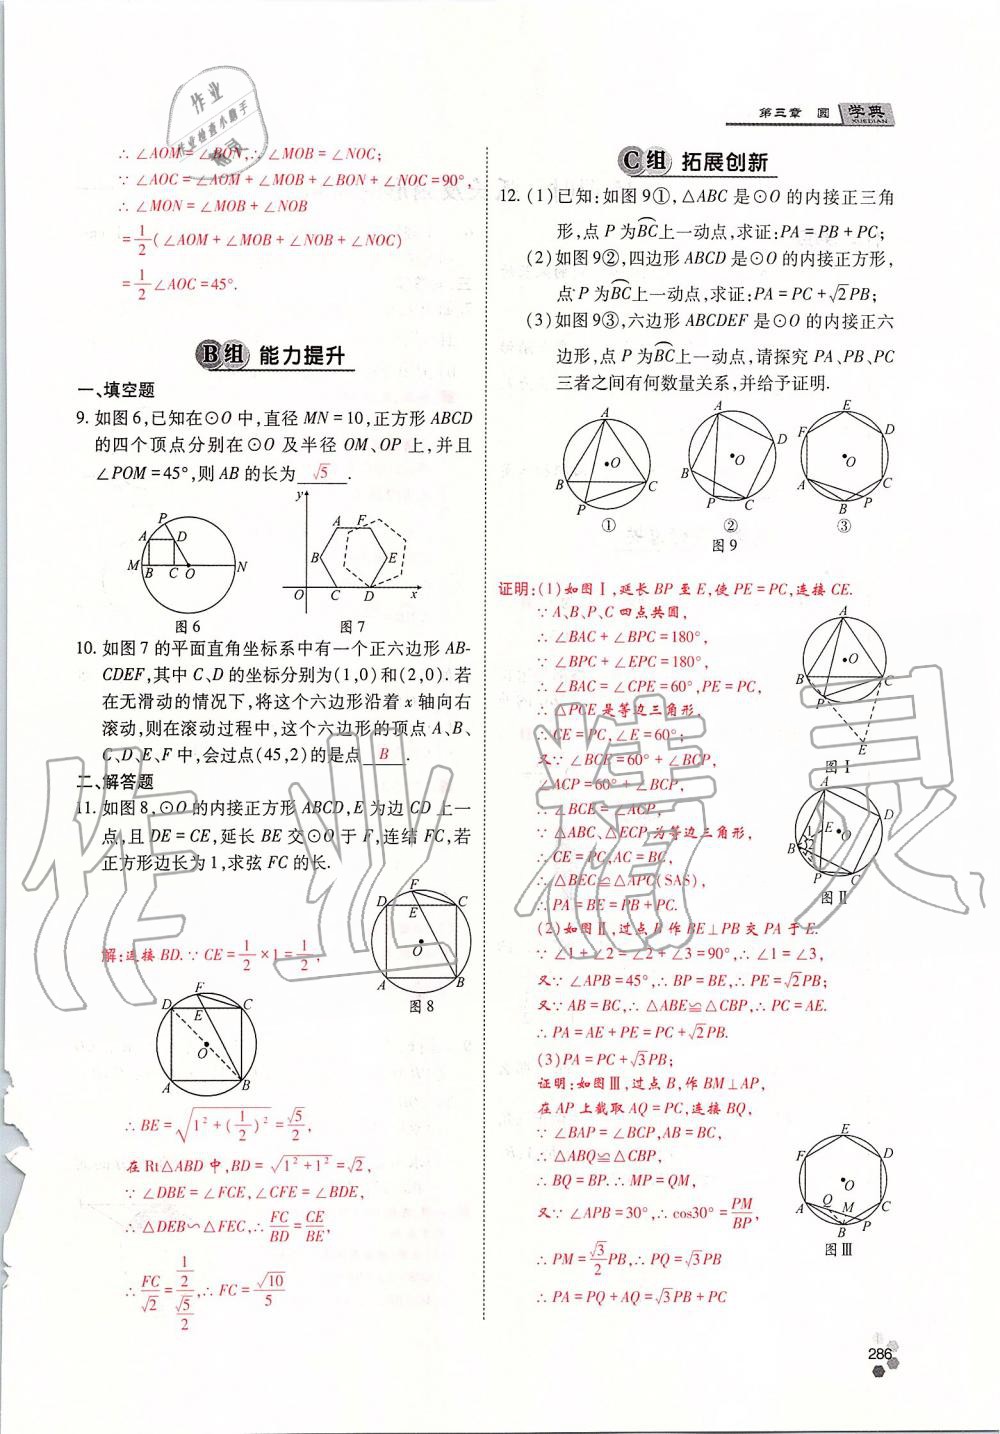 第三章 圆 学典
XUEDIAN
∴∠AOM=∠BON,∴∠MOB=∠NOC;
∵∠AOC=∠AOM+∠MOB+∠BON+∠NOC=90°,
∴∠MON=∠MOB+∠NOB
=1/2(∠AOM+∠MOB+∠NOB+∠NOC)
=1/2∠AOC=45°.
B组 能力提升
一、填空题
9. 如图6,已知在⊙O中,直径MN=10,正方形ABCD
的四个顶点分别在⊙O及半径OM、OP上,并且
∠POM=45°,则AB的长为 √5 .
图6
图7
10. 如图7的平面直角坐标系中有一个正六边形AB-
CDEF,其中C、D的坐标分别为(1,0)和(2,0).若
在无滑动的情况下,将这个六边形沿着x轴向右
滚动,则在滚动过程中,这个六边形的顶点A、B、
C、D、E、F中,会过点(45,2)的是点 B .
二、解答题
11. 如图8,⊙O的内接正方形ABCD,E为边CD上一
点,且DE=CE,延长BE交⊙O于F,连结FC,若
正方形边长为1,求弦FC的长.
图8
解:连接BD.∵CE=1/2×1=1/2,
∴BE=√(1²+(1/2)²)=√5/2,
在Rt△ABD中,BD=√(1²+1²)=√2,
∵∠DBE=∠FCE,∠CFE=∠BDE,
∴△DEB∽△FEC,∴FC/BD=CE/BE,
∴FC/√2=(1/2)/(√5/2),∴FC=√10/5
C组 拓展创新
12. (1)已知:如图9①,△ABC是⊙O的内接正三角
形,点P为BC上一动点,求证:PA=PB+PC;
(2)如图9②,四边形ABCD是⊙O的内接正方形,
点P为BC上一动点,求证:PA=PC+√2PB;
(3)如图9③,六边形ABCDEF是⊙O的内接正六
边形,点P为BC上一动点,请探究PA、PB、PC
三者之间有何数量关系,并给予证明.
① ② ③
图9
证明:(1)如图Ⅰ,延长BP至E,使PE=PC,连接CE.
∵A、B、P、C四点共圆,
∴∠BAC+∠BPC=180°,
∵∠BPC+∠EPC=180°,
∴∠BAC=∠CPE=60°,PE=PC,
∴△PCE是等边三角形,
∴CE=PC,∠E=60°;
又∵∠BCE=60°+∠BCP,
∠ACP=60°+∠BCP,
∴∠BCE=∠ACP,
∵△ABC、△ECP为等边三角形,
∴CE=PC,AC=BC,
∴△BEC≌△APC(SAS),
∴PA=BE=PB+PC.
图Ⅰ
图Ⅱ
(2)如图Ⅱ,过点B作BE⊥PB交PA于E.
∵∠1+∠2=∠2+∠3=90°,∴∠1=∠3,
又∵∠APB=45°,∴BP=BE,∴PE=√2PB,
又∵AB=BC,∴△ABE≌△CBP,∴PC=AE.
∴PA=AE+PE=PC+√2PB.
(3)PA=PC+√3PB;
证明:如图Ⅲ,过点B,作BM⊥AP,
在AP上截取AQ=PC,连接BQ,
∵∠BAP=∠BCP,AB=BC,
∴△ABQ≌△CBP,
∴BQ=BP.∴MP=QM,
又∵∠APB=30°,∴cos30°=PM/BP,
∴PM=√3/2PB,∴PQ=√3PB
∴PA=PQ+AQ=√3PB+PC
图Ⅲ
286
作业精灵
作业
作业检查小助手
精灵